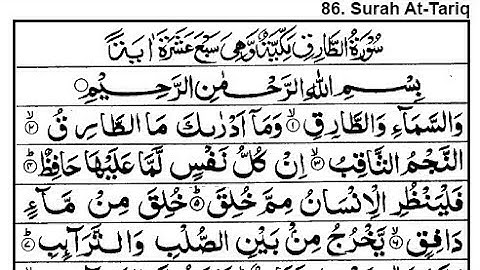 86. Surah At-Tariq
سُوْرَةُ الطَّارِقِ مَكِّيَّةٌ وَّهِىَ سَبْعَ عَشَرَةَ اٰيَةً
بِسْمِ اللهِ الرَّحْمٰنِ الرَّحِيْمِ
وَالسَّمَآءِ وَالطَّارِقِ ۙ﴿۱﴾ وَمَاۤ اَدْرٰىكَ مَا الطَّارِقُ ۙ﴿۲﴾
النَّجْمُ الثَّاقِبُ ۙ﴿۳﴾ اِنْ كُلُّ نَفْسٍ لَّمَّا عَلَيْهَا حَافِظٌ ؕ﴿۴﴾
فَلْيَنْظُرِ الْاِنْسَانُ مِمَّ خُلِقَ ؕ﴿۵﴾ خُلِقَ مِنْ مَّآءٍ
دَافِقٍ ۙ﴿۶﴾ يَّخْرُجُ مِنْۢ بَيْنِ الصُّلْبِ وَالتَّرَآئِبِ ؕ﴿۷﴾